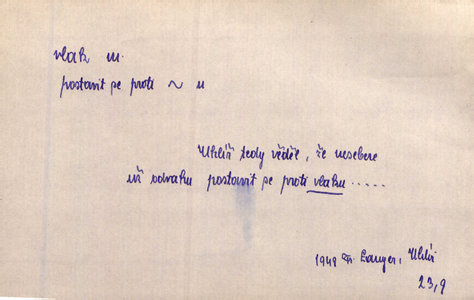 vlak m.
postavit se proti ~ u
Uhlíř tedy věděl, že nesebere
již odvahu postavit se proti vlaku.....
1948 Fr. Langer, Uhlíř
23,9